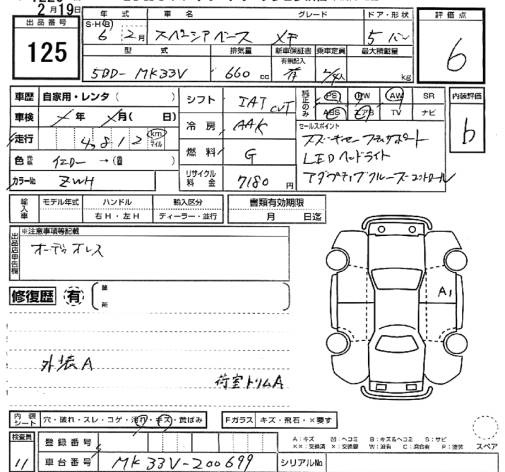 2月19日
出品番号
125
年 式 車 名 グレード ドア・形状
S・H(R) 6年 2月 スペーシアベース XF 5 バン
型 式 排気量 新車保証書 乗車定員 最大積載量
有無記入
5BD- MK33V 660 cc 有 kg
評価点
6
車歴 自家用・レンタ( )
車検 年 月( 日)
走行 4,812 km マイル
色 イエロー →( )
カラーNo ZWH
シフト IAT CVT
冷房 AAK
燃料 G
リサイクル料金 7180 円
純正のみ PS PW AW SR
ABS エアB TV ナビ
セールスポイント
スズキセーフティサポート
LEDヘッドライト
アダプティブクルーズコントロール
内装評価
b
輸入車 モデル年式 ハンドル 輸入区分 書類有効期限
右H・左H ディーラー・並行 月 日迄
出品店申告欄
※注意事項等記載
オーディオレス
修復歴 有 箇所
A1
外装A
荷室トリムA
内装シート 穴・破れ・スレ・コゲ・汚れ・キズ・黄ばみ Fガラス キズ・飛石・×要す
検査員
11
登録番号
車台番号 MK33V-200699
シリアルNo
A:キズ U:ヘコミ B:キズ&ヘコミ S:サビ
××:交換済 ×:交換要 W:波有 C:腐食有 P:塗装 スペア